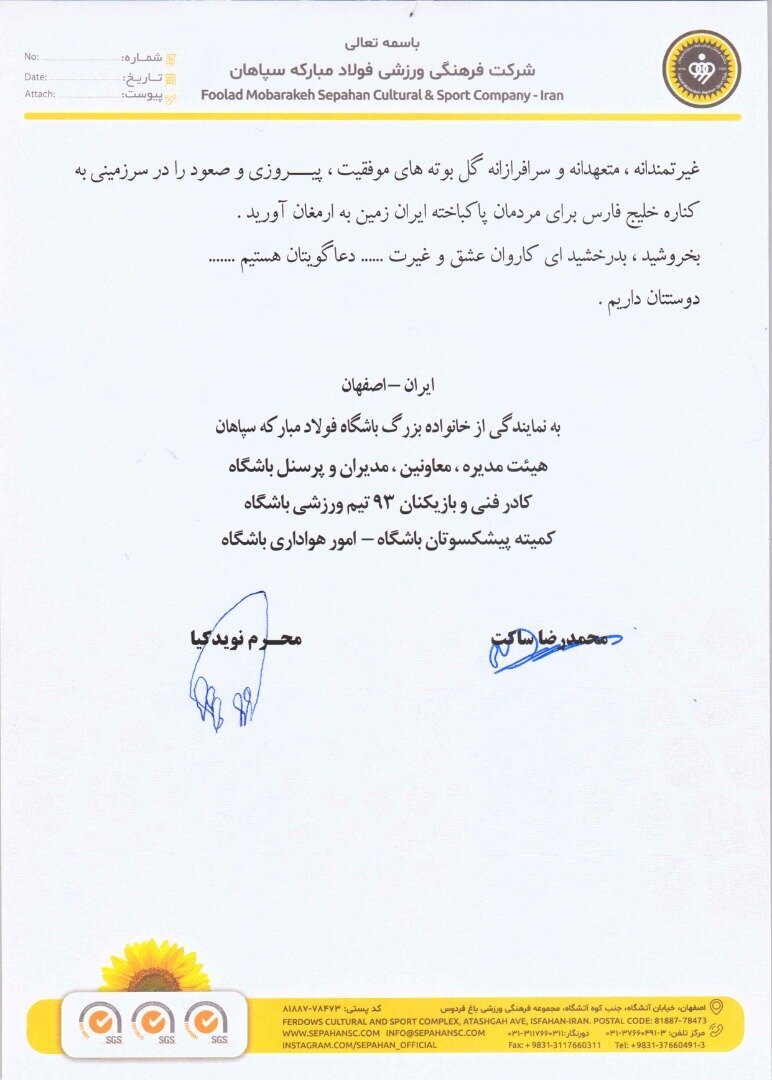 باسمه تعالی
شرکت فرهنگی ورزشی فولاد مبارکه سپاهان
Foolad Mobarakeh Sepahan Cultural & Sport Company - Iran
No: شماره:
Date: تاریخ:
Attach: پیوست:
غیرتمندانه ، متعهدانه و سرافرازانه گل بوته های موفقیت ، پیـــروزی و صعود را در سرزمینی به
کناره خلیج فارس برای مردمان پاکباخته ایران زمین به ارمغان آورید .
بخروشید ، بدرخشید ای کاروان عشق و غیرت ...... دعاگویتان هستیم .......
دوستتان داریم .
ایران – اصفهان
به نمایندگی از خانواده بزرگ باشگاه فولاد مبارکه سپاهان
هیئت مدیره ، معاونین ، مدیران و پرسنل باشگاه
کادر فنی و بازیکنان ۹۳ تیم ورزشی باشگاه
کمیته پیشکسوتان باشگاه – امور هواداری باشگاه
محمدرضا ساکت
محــرم نویدکیا
اصفهان، خیابان آتشگاه، جنب کوه آتشگاه، مجموعه فرهنگی ورزشی باغ فردوس کد پستی: ۷۸۴۷۳-۸۱۸۸۷
FERDOWS CULTURAL AND SPORT COMPLEX, ATASHGAH AVE, ISFAHAN-IRAN. POSTAL CODE: 81887-78473
مرکز تلفن: ۳-۳۷۶۶۰۴۹۱-۰۳۱ دورنگار: ۳۱۱۷۶۶۰۳۱۱-۰۳۱
WWW.SEPAHANSC.COM INFO@SEPAHANSC.COM
INSTAGRAM.COM/SEPAHAN_OFFICIAL
Fax: + 9831-3117660311 Tel: +9831-37660491-3
SGS
SGS
SGS